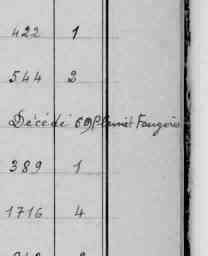 422 1
544 2
Décédé 69 Plumet Fougères
389 1
1716 4